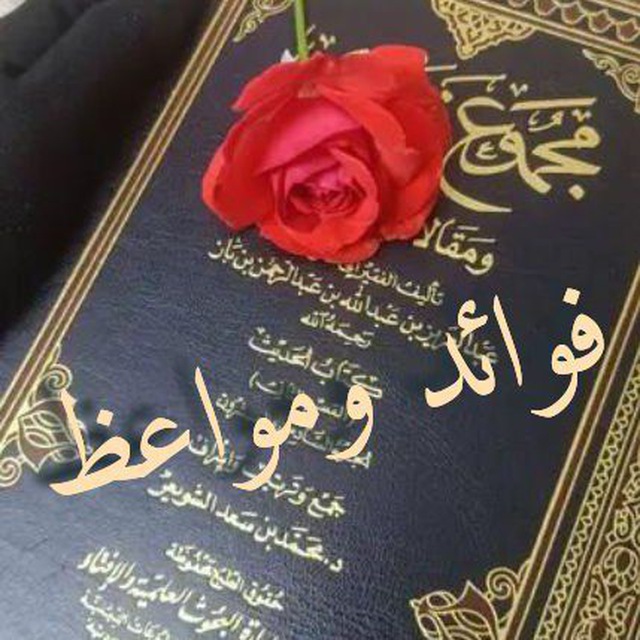 مجموع
ومقالا
تأليف الفقير إلى
عبد العزيز بن عبد الله بن عبد الرحمن بن باز
رحمه الله
كتاب الحديث
فوائد ومواعظ
جمع وترتيب وإشراف
د. محمد بن سعد الشويعر
حقوق الطبع محفوظة
إدارة البحوث العلمية والإفتاء